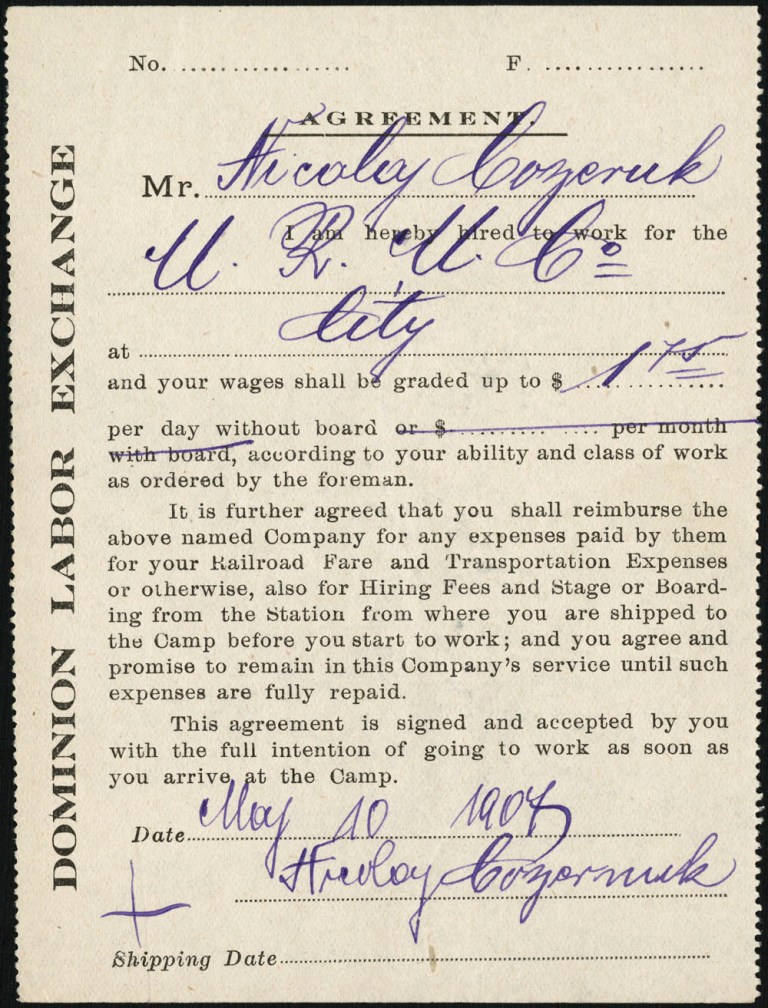 No. .................. F. ................
AGREEMENT.
Mr. Nicolay Cozeruk
I am hereby hired to work for the
M. R. M. Co
at City
and your wages shall be graded up to $ 1 75
per day without board or $ .................. per month
with board, according to your ability and class of work
as ordered by the foreman.
It is further agreed that you shall reimburse the
above named Company for any expenses paid by them
for your Railroad Fare and Transportation Expenses
or otherwise, also for Hiring Fees and Stage or Board-
ing from the Station from where you are shipped to
the Camp before you start to work; and you agree and
promise to remain in this Company's service until such
expenses are fully repaid.
This agreement is signed and accepted by you
with the full intention of going to work as soon as
you arrive at the Camp.
Date May 10 1907
Nicolay Cozermuk
Shipping Date
DOMINION LABOR EXCHANGE